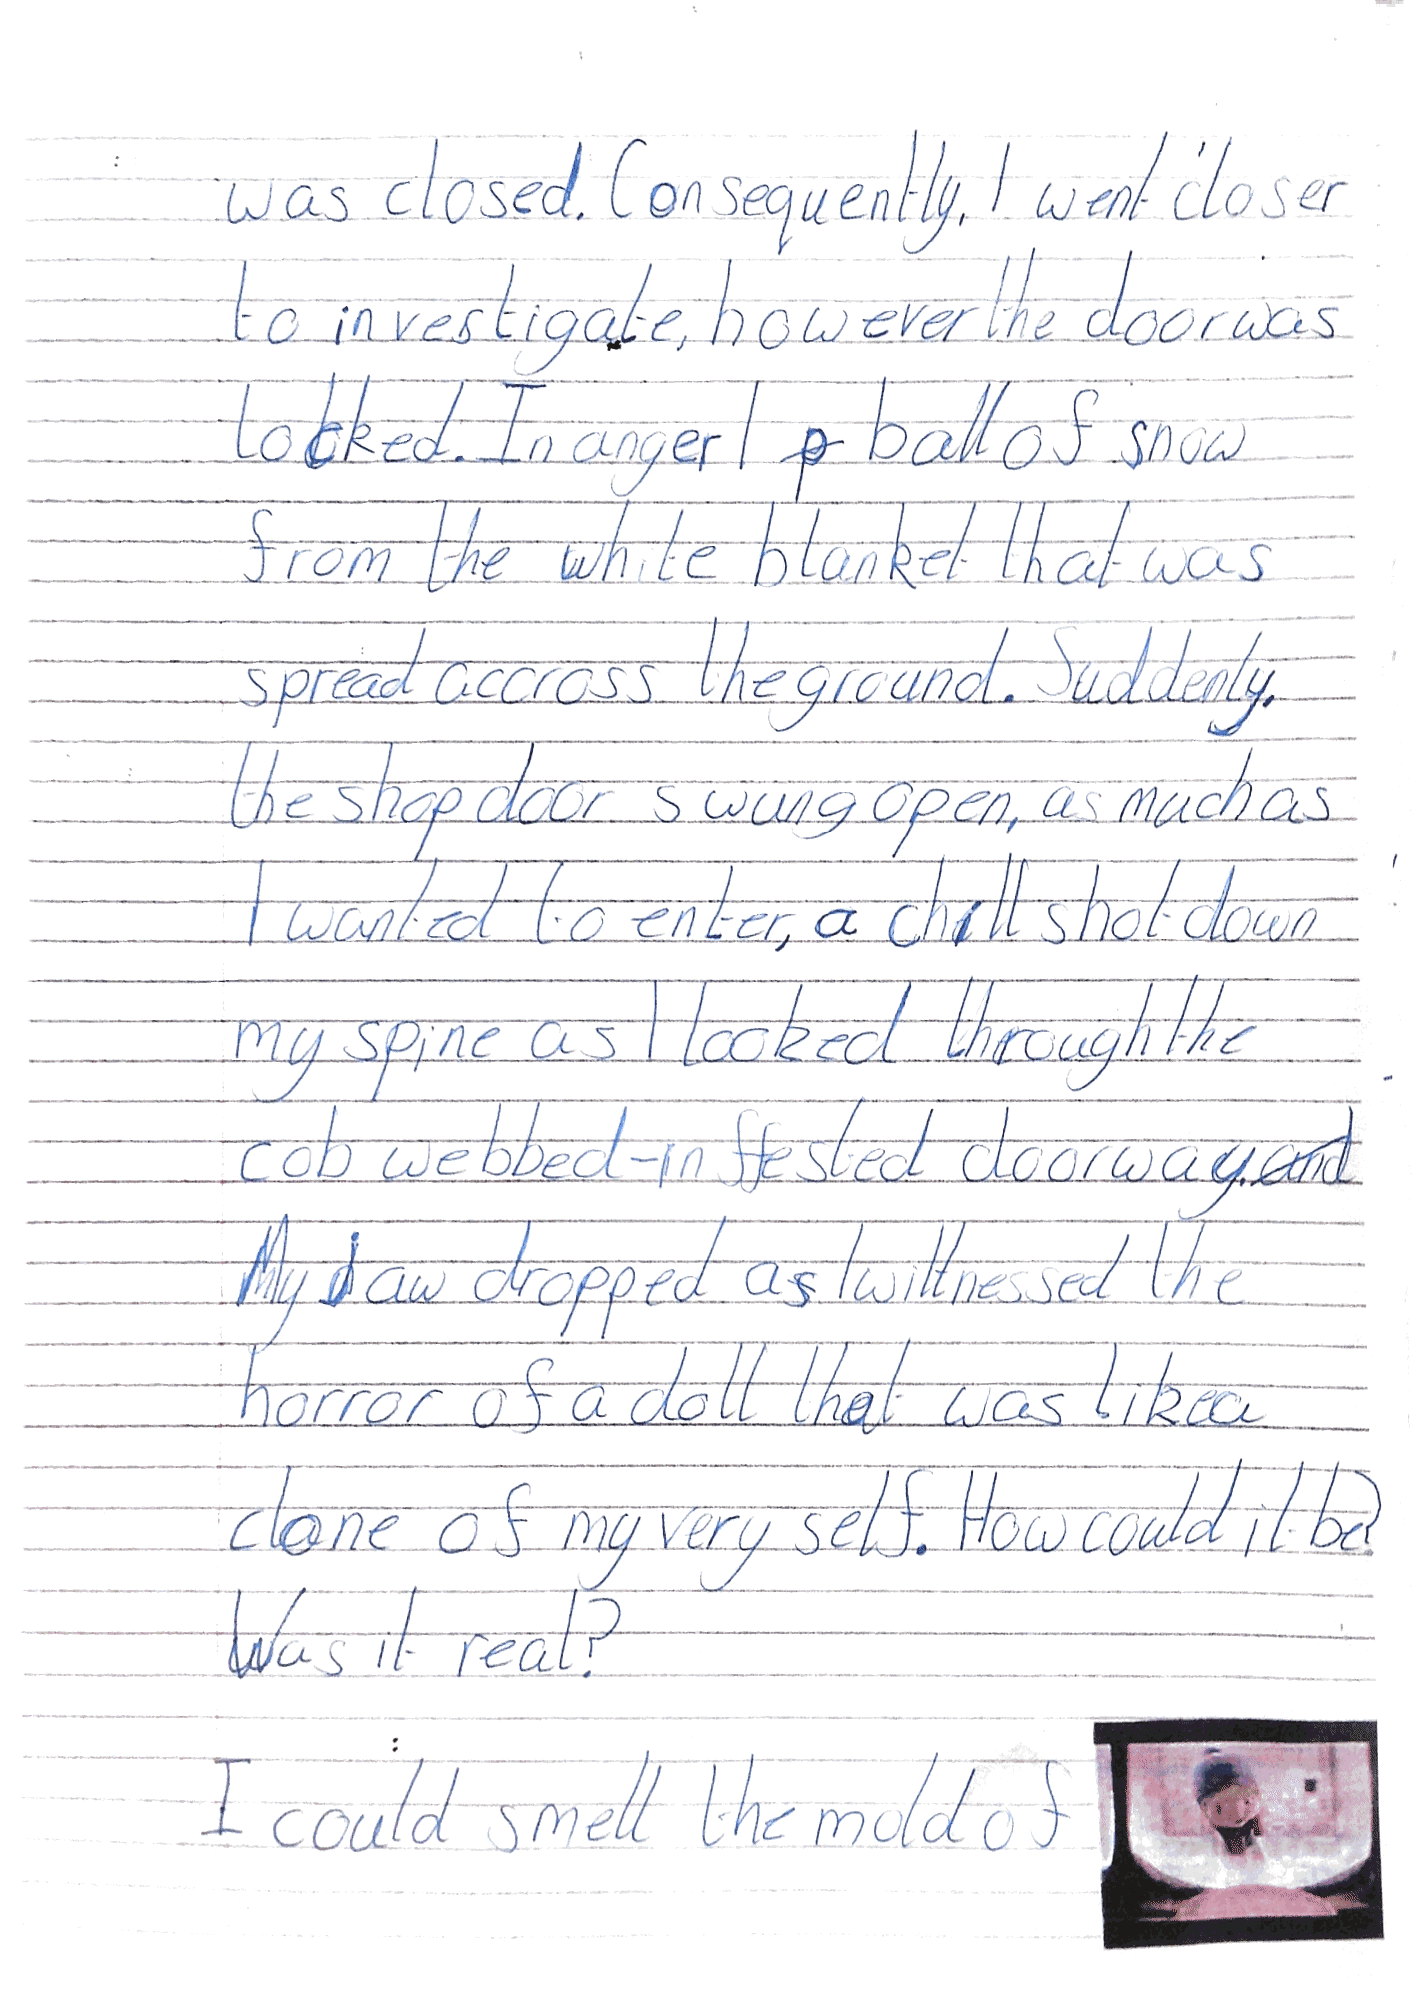 was closed. Consequently, I went closer
to investigate, however the door was
locked. In anger I p ball of snow
from the white blanket that was
spread accross the ground. Suddenly,
the shop door swung open, as much as
I wanted to enter, a chill shot down
my spine as I looked through the
cob webbed-inffested doorway. and
My jaw dropped as I wittnessed the
horror of a doll that was like a
clone of my very self. How could it be?
Was it real?
I could smell the mold of